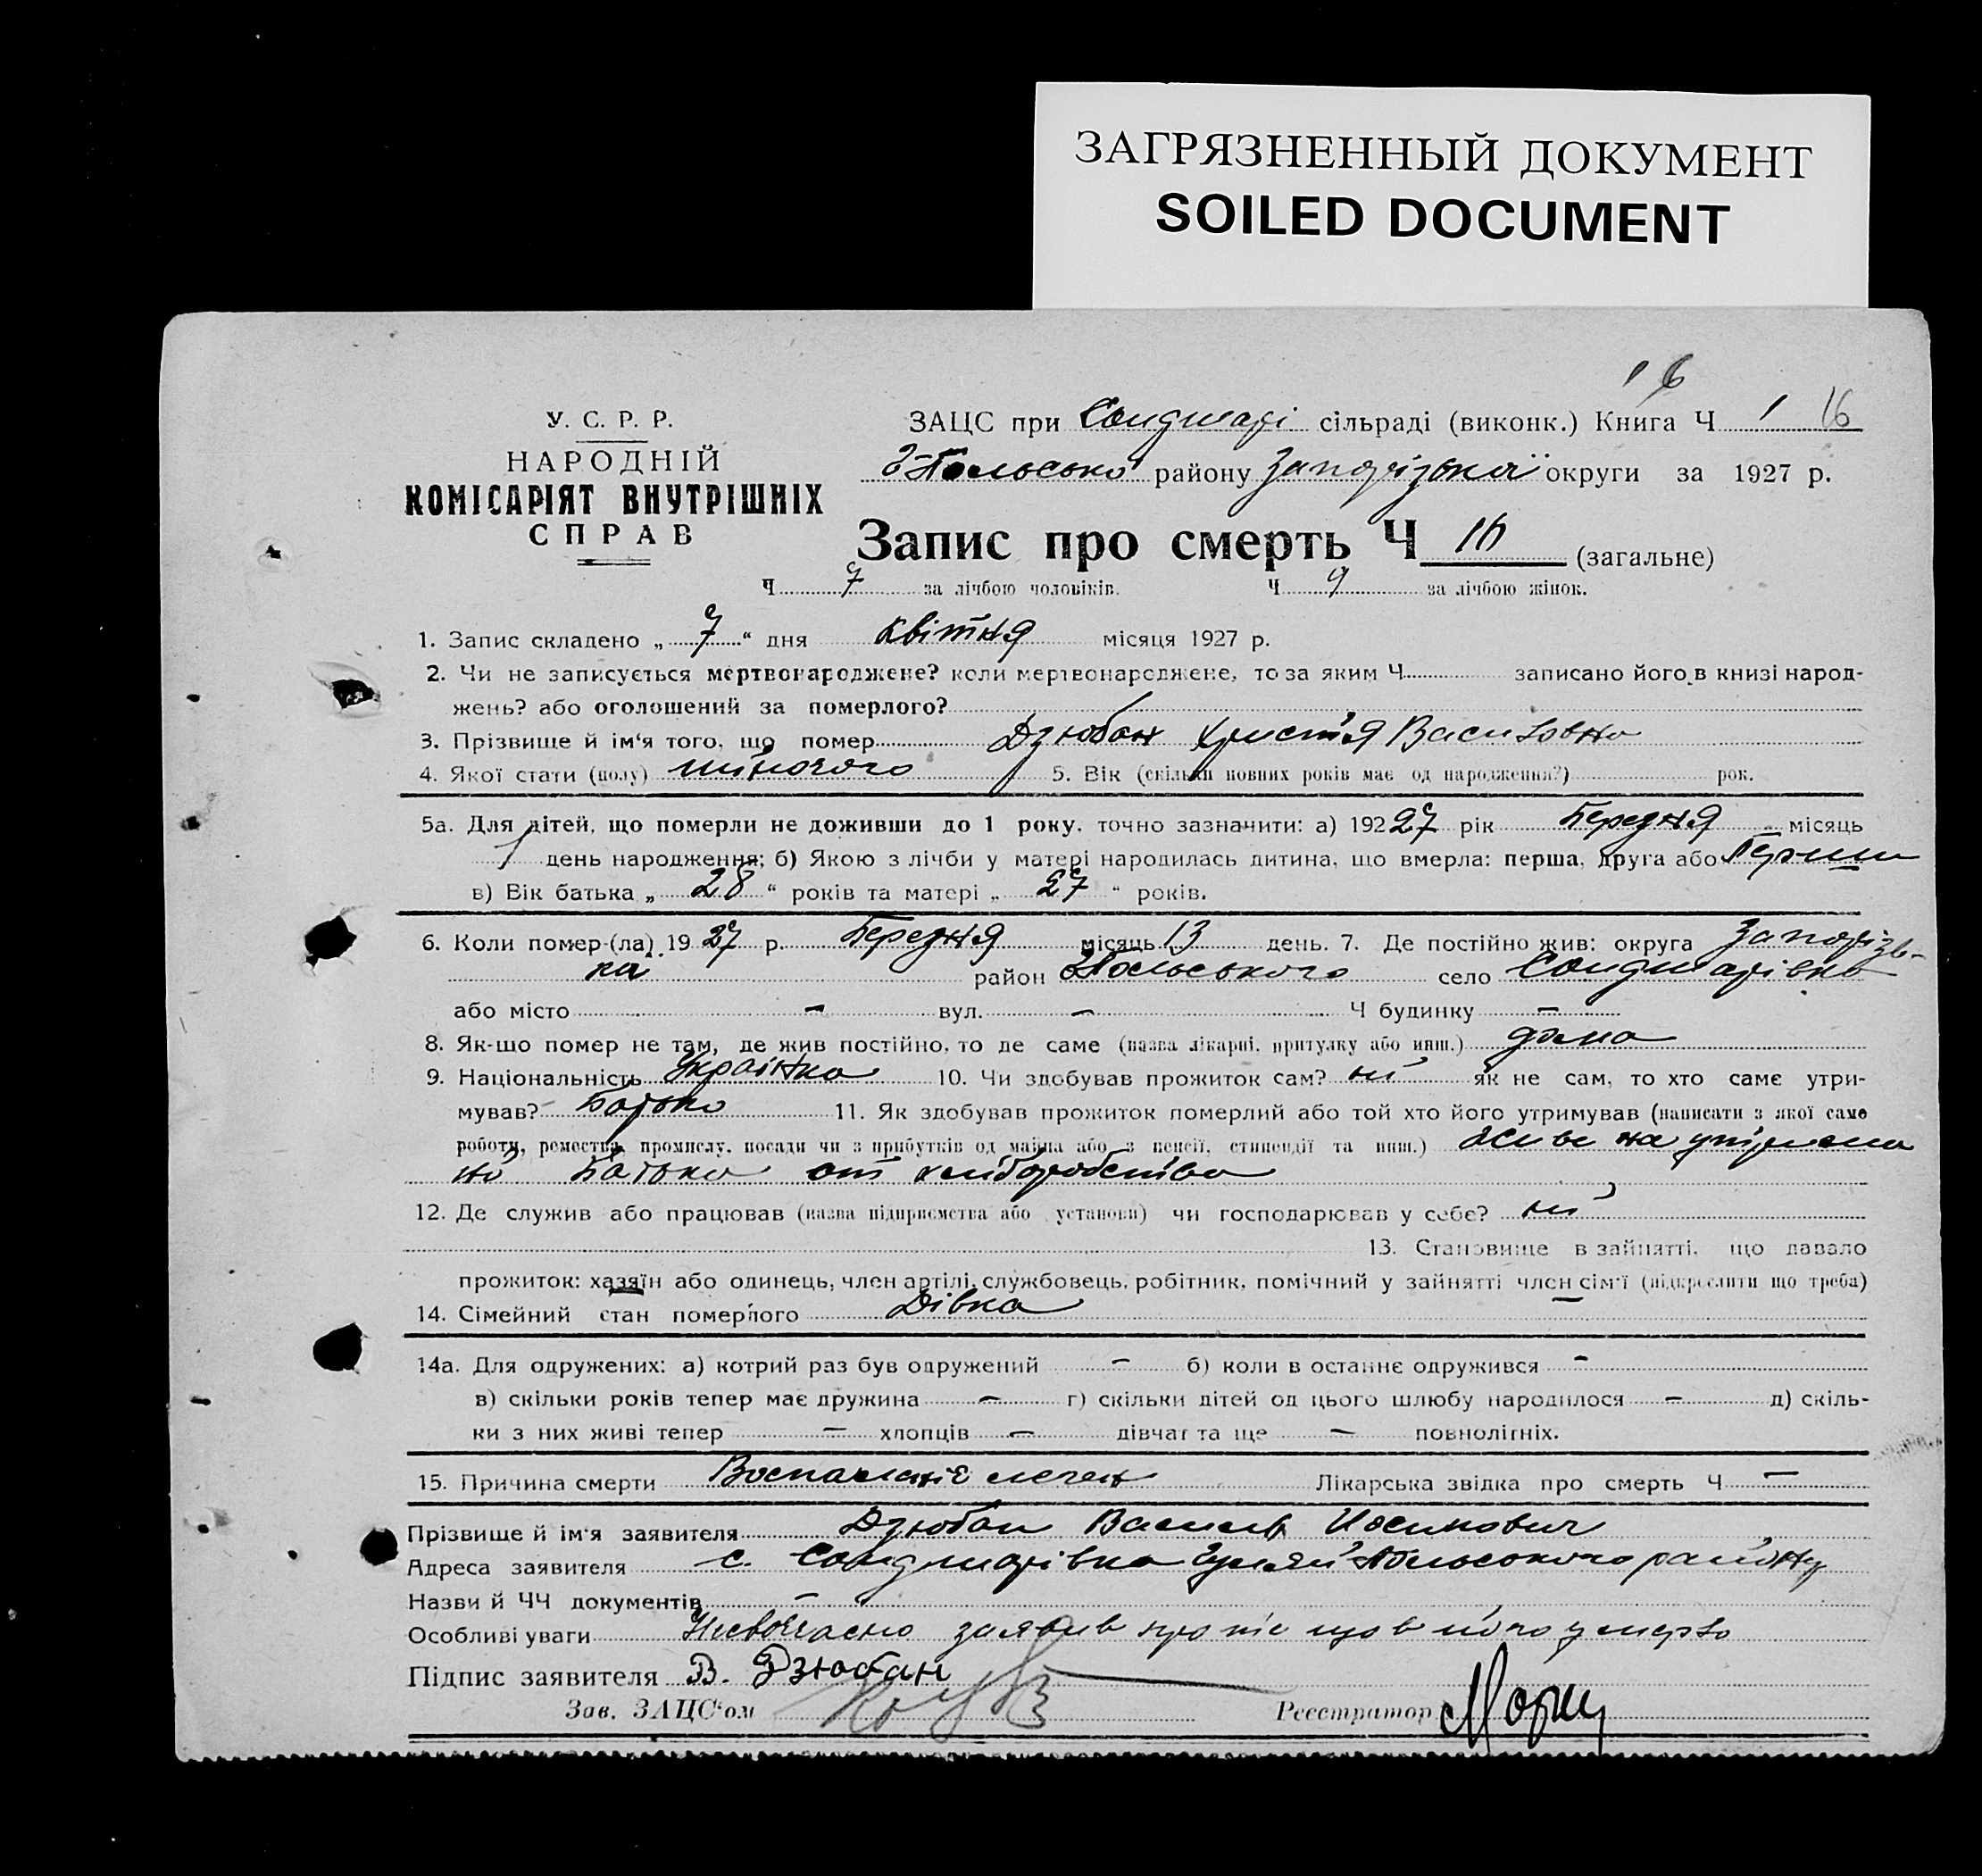 ЗАГРЯЗНЕННЫЙ ДОКУМЕНТ
SOILED DOCUMENT
16
У. С. Р. Р.
НАРОДНІЙ
КОМІСАРІЯТ ВНУТРІШНІХ
СПРАВ
ЗАЦС при сільраді (виконк.) Книга Ч 1 16
району Запорізької округи за 1927 р.
Запис про смерть Ч 16 (загальне)
Ч 7 за лічбою чоловіків. Ч 9 за лічбою жінок.
1. Запис складено „ 7 “ дня квітня місяця 1927 р.
2. Чи не записується мертвонароджене? коли мертвонароджене, то за яким Ч записано його в книзі народ-
жень? або оголошений за померлого?
3. Прізвище й ім‘я того, що помер Дзюбан Христя Василовна
4. Якої стати (полу) жіночого 5. Вік (скільки повних років має од народження?) рок.
5а. Для дітей, що померли не доживши до 1 року, точно зазначити: а) 192 27 рік Березня місяць
1 день народження; б) Якою з лічби у матері народилась дитина, що вмерла: перша, друга або
в) Вік батька „ 28 “ років та матері „ 27 “ років.
6. Коли помер-(ла) 19 27 р. Березня місяць 13 день. 7. Де постійно жив: округа Запорізь-
ка район село
або місто – вул. – Ч будинку –
8. Як-що помер не там, де жив постійно, то де саме (назва лікарні, притулку або инш.) дома
9. Національність Українка 10. Чи здобував прожиток сам? ні як не сам, то хто саме утри-
мував? Батько 11. Як здобував прожиток померлий або той хто його утримував (написати з якої саме
роботи, ремества, промислу, посади чи з прибутків од майна або з пенсії, стипендії та инш.) живе на
Батька от хліборобства
12. Де служив або працював (назва підприємства або установи) чи господарював у себе? ні
13. Становище в зайнятті, що давало
прожиток: хазяїн або одинець, член артілі, службовець, робітник, помічний у зайнятті член сім‘ї (підкреслити що треба)
14. Сімейний стан померлого Дівка –
14а. Для одружених: а) котрий раз був одружений – б) коли в останнє одружився –
в) скільки років тепер має дружина – г) скільки дітей од цього шлюбу народилося – д) скіль-
ки з них живі тепер – хлопців – дівчат та ще – повнолітніх.
15. Причина смерти Воспаление леген Лікарська звідка про смерть Ч –
Прізвище й ім‘я заявителя Дзюбан Василь Иосипович
Адреса заявителя с. району
Назви й ЧЧ документів –
Особливі уваги заявив про те що в його умерло
Підпис заявителя В. Дзюбан
Зав. ЗАЦС‘ом Реєстратор